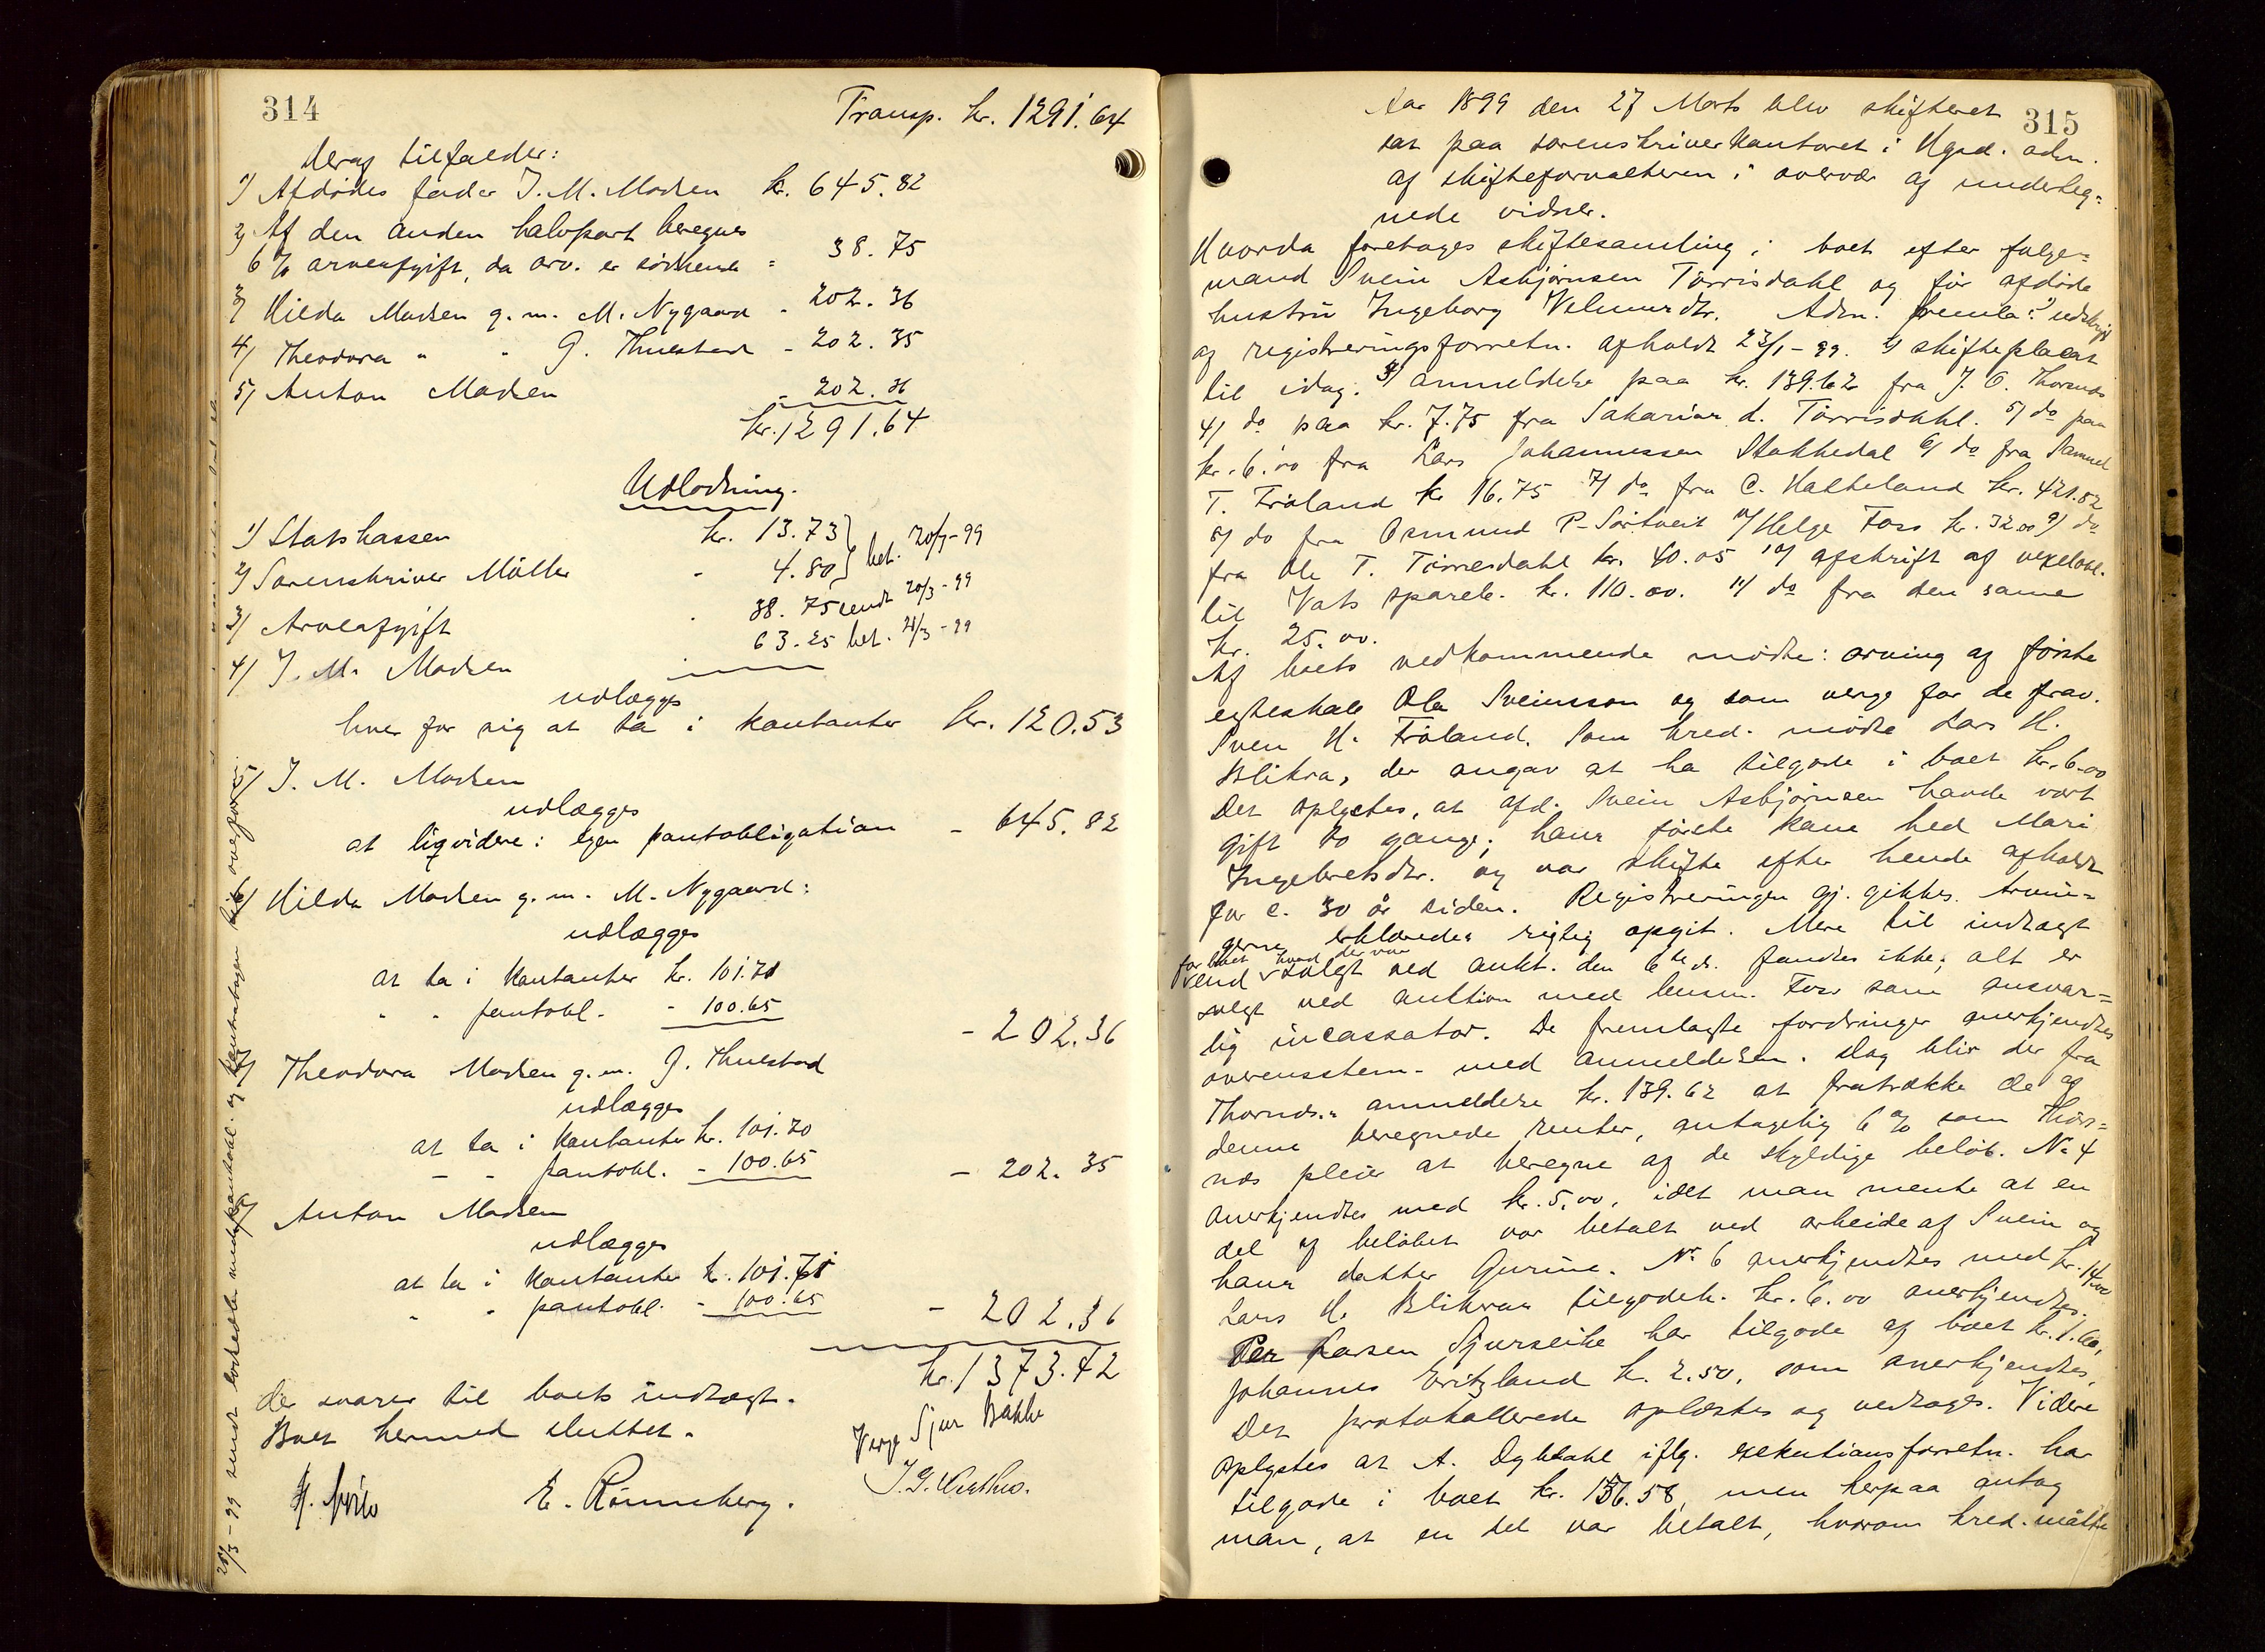 314
Transp. kr. 1291.64
deraf tilfalder:
1) Afdødes fader J. M. Madsen kr. 645.82
2) Af den anden halvpart beregnes
6 % arveafgift, da arv. er søskende = 38.75
3) Hilda Madsen g. m. M. Nygaard - 202.36
4) Theodora " " G. Thuestad - 202.35
5) Anton Madsen - 202.36
kr. 1291.64
Udlodning.
1) Statskassen kr. 13.73
2) Sorenskriver Müller - 4.80 bet. 20/3-99
3) Arveafgift - 38.75 sendt 20/3-99
4) J. M. Madsen - 63.25 bet. 21/3-99
udlægges
hver for sig at ta i kontanter kr. 120.53
5) J. M. Madsen
udlægges
at liqvidere i egen pantobligation - 645.82
6) Hilda Madsen g. m. M. Nygaard:
udlægges
at ta i kontanter kr. 101.71
" " pantobl. - 100.65
- 202.36
7) Theodora Madsen g. m. G. Thuestad
udlægges
at ta i kontanter kr. 101.70
- - pantobl. - 100.65 - 202.35
8) Anton Madsen
udlægges
at ta i kontanter k. 101.71
" " pantobl. - 100.65 - 202.36
kr. 1373.42
der svarer til boets indtægt.
Boet hermed sluttet.
Verge Sjur Bakke
E. Rønneberg.
20/3-99 sendt
315
Aar 1899 den 27 Marts blev skifteret
sat paa sorenskriverkontoret i Hgsd. adm.
af skifteforvalteren i overvær af underteg=
nede vidner.
Hvorda foretages skiftesamling i boet efter følge=
mand Svein Asbjørnsen Tørrisdahl og før afdøde
hustru Ingeborg Velmunrdtr. Adm. fremla: 1) udskrift
af registreringsforretn. afholdt 23/1-99. 2) skifteplacat
til idag. 3) anmeldelse paa kr. 139.62 fra J. C. Thornds
4) do paa kr. 7.75 fra Sakarias d. Tørrisdahl. 5) do paa
kr. 6.00 fra Lars Johannessen Stakkedal 6) do fra Samuel
T. Frøland kr 16.75 7) do fra C. Hatteland kr. 421.52
8) do fra Osmund P. Sørtveit v/Helge Foss kr. 32.00 9) do
fra Ole T. Tørresdahl kr. 40.05 10) afskrift af vexelobl.
til Vats spareb. kr. 110.00. 11) do fra den same
kr. 25.00.
Af boets vedkommende mødte: arving af første
egteskab Ole Sveinsson og som verge for de frav.
Sven H. Frøland. Som kred. mødte Lars H.
Blikra, der angav at ha tilgode i boet kr. 6.00
Det oplystes, at afd. Svein Asbjørnsen havde vært
gift to gange; hans første kone hed Mari
Ingebretsdtr. og var skifte efter hende afholdt
for c. 30 år siden. Registreringen gj. gikkes. arvin=
gerne erklæredes rigtig opgit. Mere til indtægt
for boet hvad der var
end solgt ved aukt. den 6te ds. fandtes ikke; alt er
solgt ved auktion med lensm. Foss som ansvar=
lig incassator. De fremlagte fordringer anerkjendtes
overensstem. med anmeldelsen. dog blir der fra
Thornds.s anmeldelse kr. 139.62 at fratrække de af
denne beregnede renter, antagelig 6 % som Thor=
nds pleier at beregne af de skyldige beløb. No 4
anerkjendtes med kr. 5.00, idet man mente at en
del af beløbet var betalt ved arbeide af Svein og
hans datter Gurine. No 6 anerkjendtes med kr. 14.00
Lars H. Blikras tilgodeh. kr. 6.00 anerkjendtes.
Per Larsen Sjurseike har tilgode af boet kr. 1.60,
Johannes Eritzland k. 2.50, som anerkjendtes,
Det protokollerede oplæstes og vedtoges. Videre
oplystes at A. Dybdahl iflg. exekutionsforretn. har
tilgode i boet kr. 156.58, men herpaa antog
man, at en del var betalt, hvorom kred. måtte